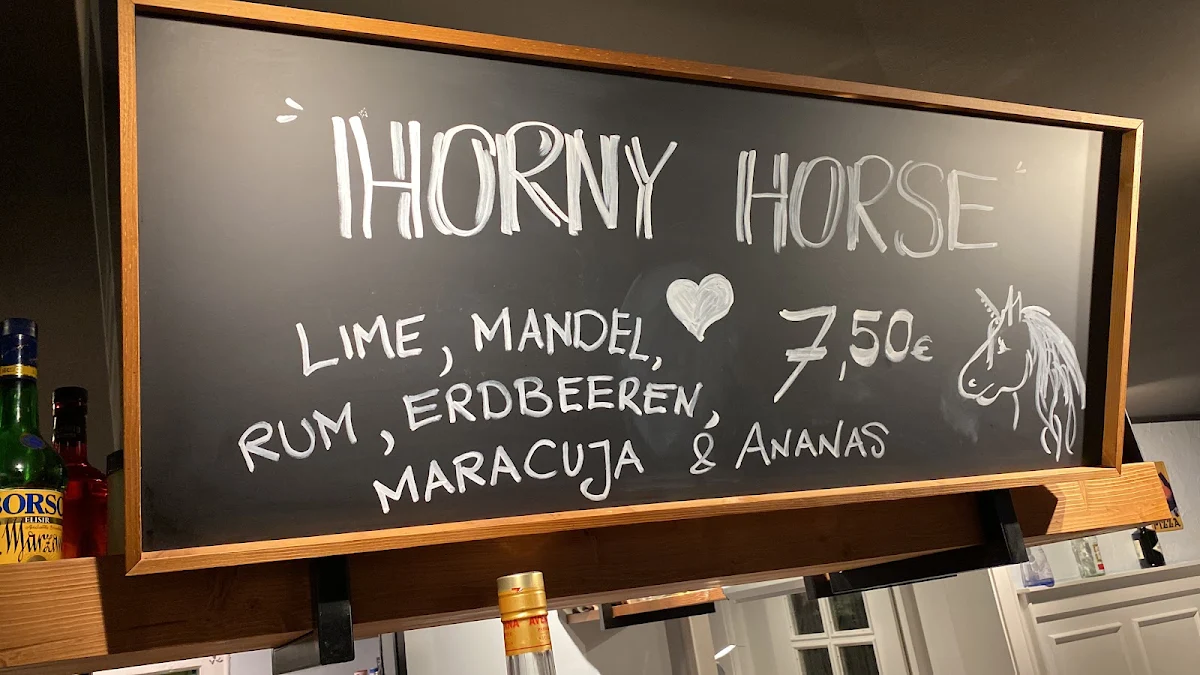 HORNY HORSE
LIME, MANDEL,
7,50€
RUM, ERDBEEREN,
MARACUJA & ANANAS
BORSC
ELISIR